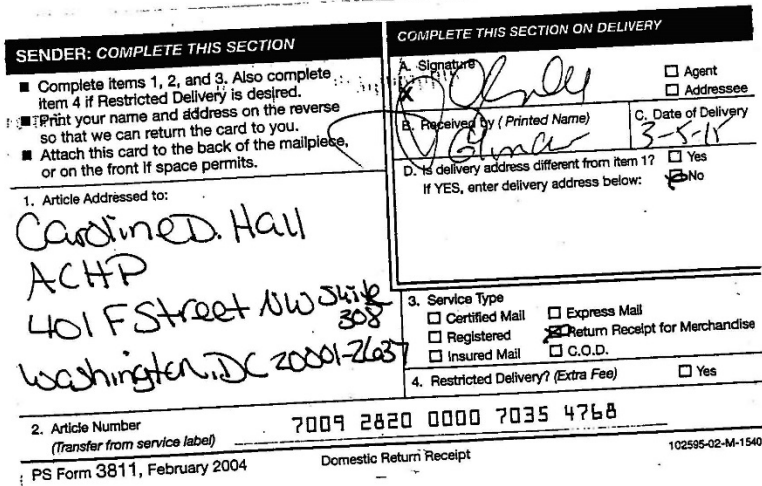 SENDER: COMPLETE THIS SECTION
■ Complete items 1, 2, and 3. Also complete
item 4 if Restricted Delivery is desired.
■ Print your name and address on the reverse
so that we can return the card to you.
■ Attach this card to the back of the mailpiece,
or on the front if space permits.
1. Article Addressed to:
Caroline D. Hall
ACHP
401 F Street NW Suite
308
Washington, DC 20001-2637
2. Article Number
(Transfer from service label)
7009 2820 0000 7035 4768
COMPLETE THIS SECTION ON DELIVERY
A. Signature
X
☐ Agent
☐ Addressee
B. Received by (Printed Name)
C. Date of Delivery
3-5-15
D. Is delivery address different from item 1? ☐ Yes
If YES, enter delivery address below: ☒ No
3. Service Type
☐ Certified Mail ☐ Express Mail
☐ Registered ☒ Return Receipt for Merchandise
☐ Insured Mail ☐ C.O.D.
4. Restricted Delivery? (Extra Fee) ☐ Yes
PS Form 3811, February 2004 Domestic Return Receipt 102595-02-M-1540